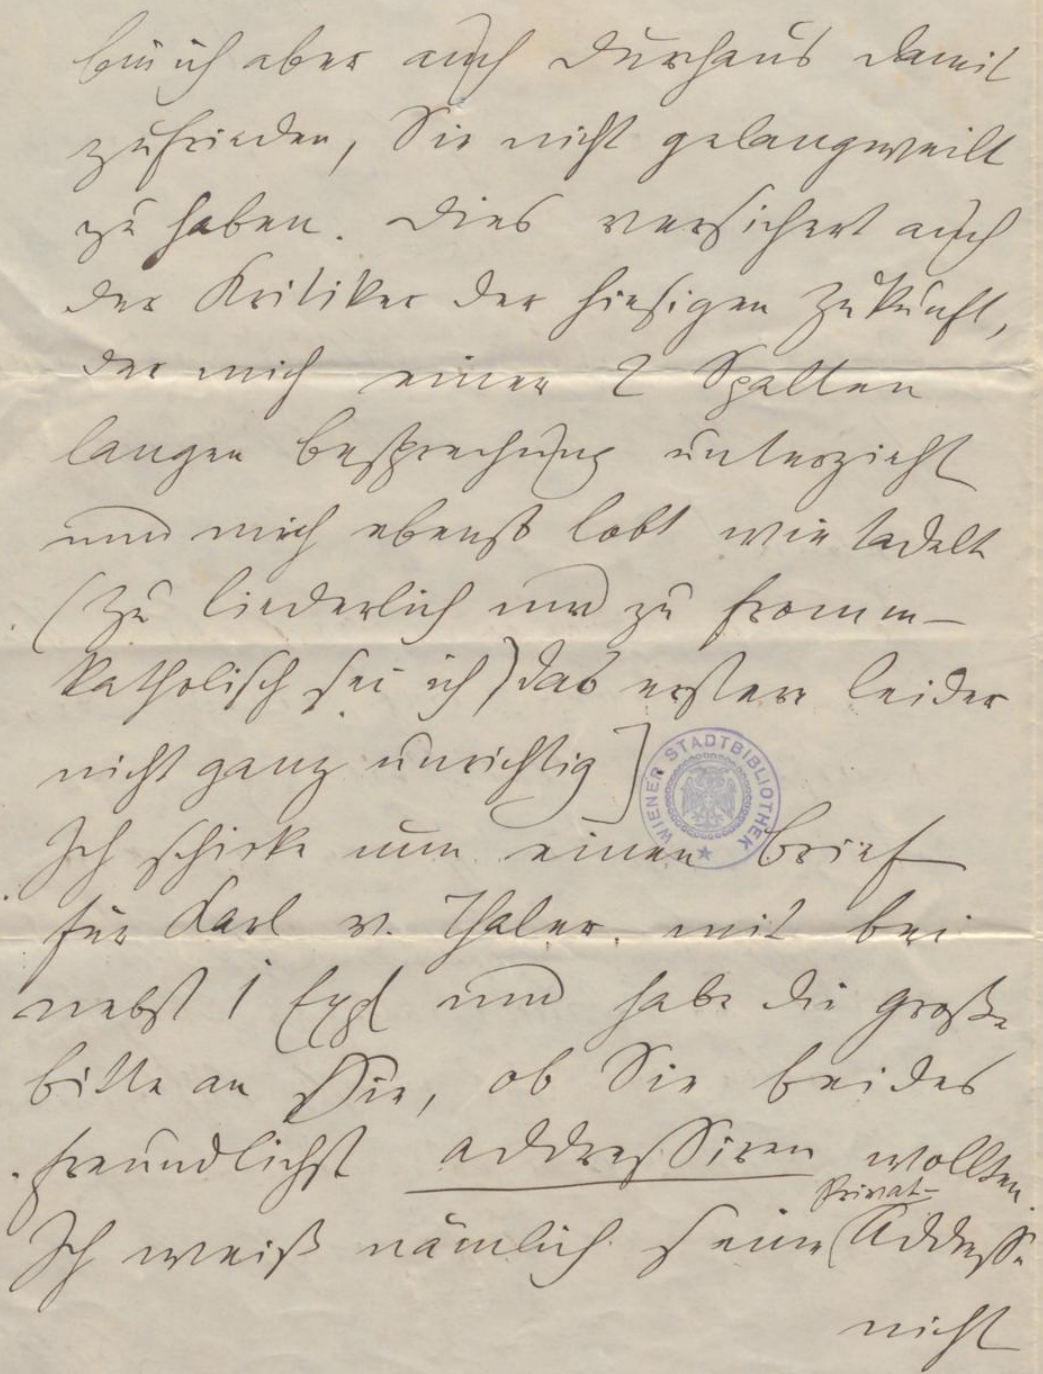 bin ich aber auch durchaus damit
zufrieden, Sie nicht gelangweilt
zu haben. Dies versichert auch
der Kritiker der hiesigen Zukunft,
der mich einer 2 Spalten
langen Besprechung unterzieht
und mich ebenso lobt wie tadelt
(zu liederlich und zu fromm-
katholisch sei ich) das erstere leider
nicht ganz unrichtig]
WIENER STADTBIBLIOTHEK
Ich schicke nun einen Brief
für Karl v. Thaler mit bei
nebst 1 Expl und habe die große
Bitte an Sie, ob Sie beides
freundlichst addressiren wollten.
Privat-
Ich weiß nämlich seine Addresse
nicht